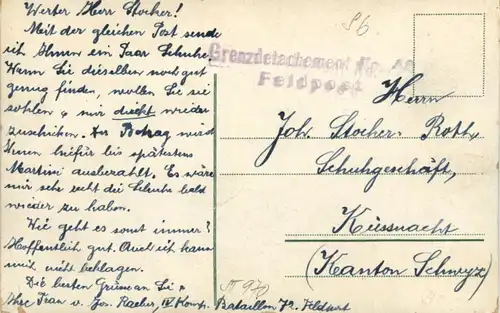 Werter Herr Stocker!
Mit der gleichen Post sende
ich Ihnen ein Paar Schuhe.
Wenn Sie dieselben noch gut
genug finden, wollen Sie sie
sohlen u. mir direkt wieder
zuschicken. Der Betrag wird
Ihnen hiefür bis spätestens
Martini ausbezahlt. Es wäre
mir sehr recht die Schuhe bald
wieder zu haben.
Wie geht es sonst immer?
Hoffentlich gut. Auch ich kann
mich nicht beklagen.
Die besten Grüsse an Sie u.
Ihre Frau v. Jos. IV Komp. Bataillon 72. Feldpost
Grenzdetachement No.
Feldpost
Herrn
Joh. Stocker-Roth,
Schuhgeschäft,
Küssnacht
(Kanton Schwyz)